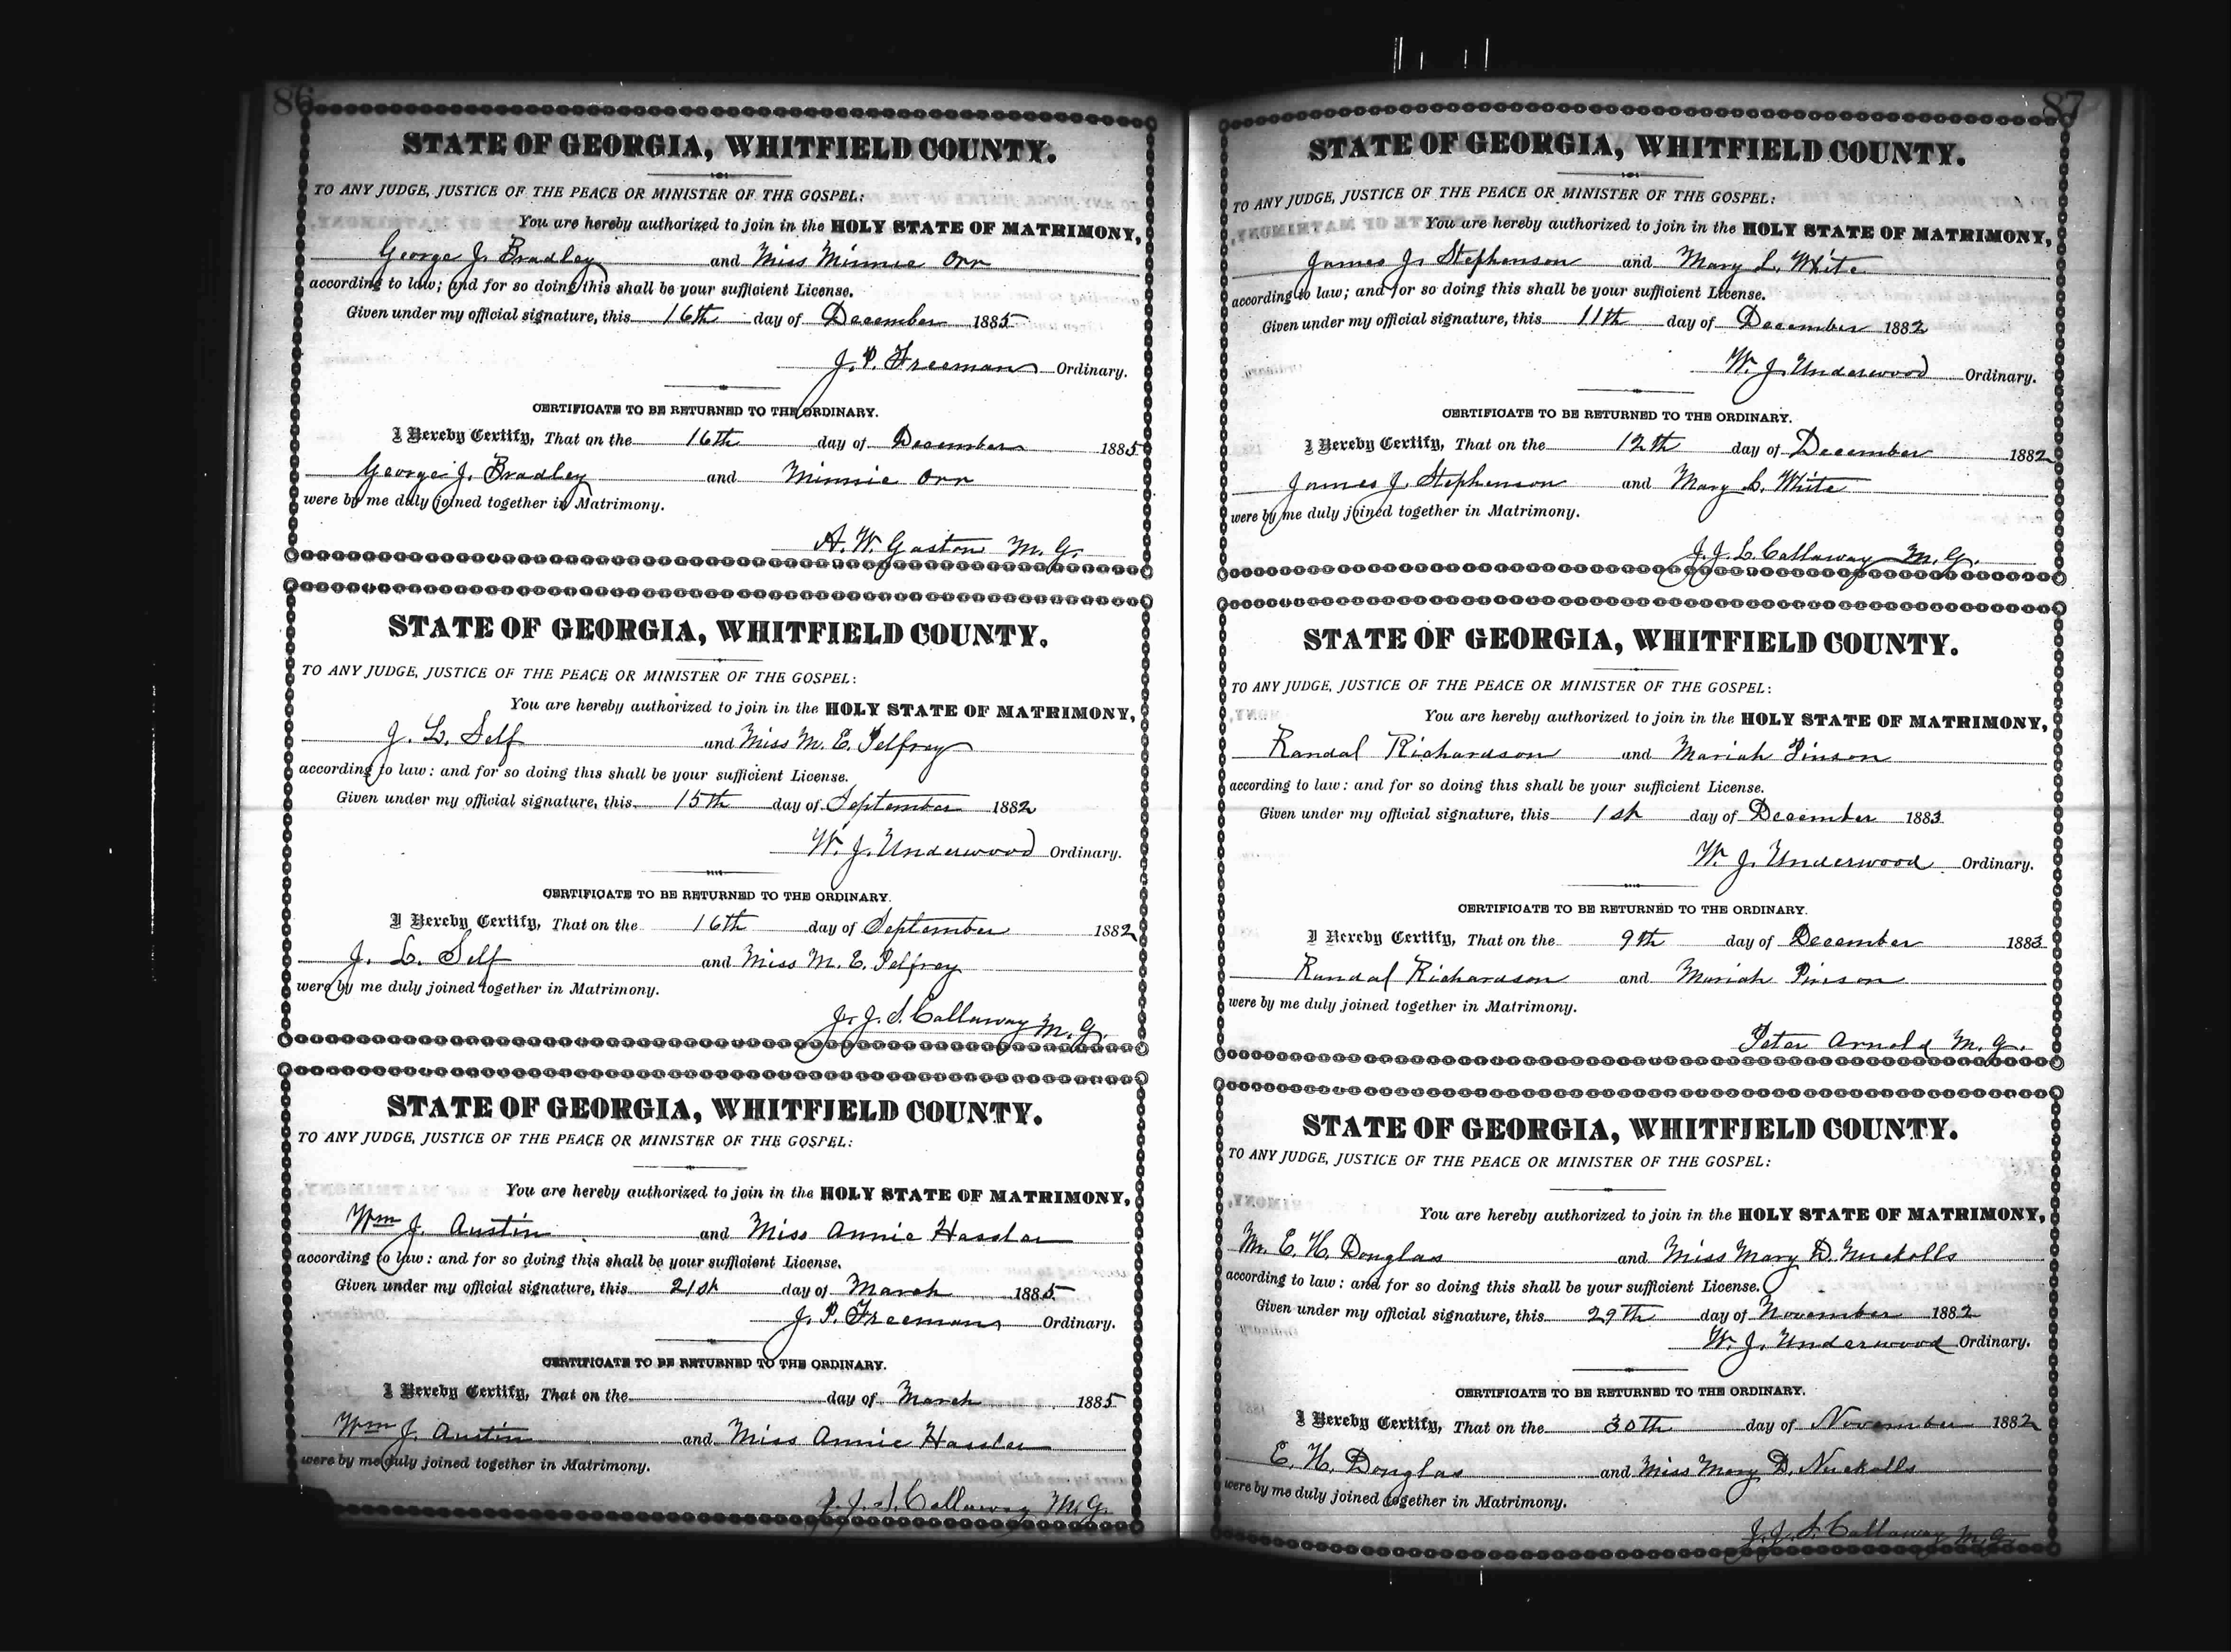 86
STATE OF GEORGIA, WHITFIELD COUNTY.
TO ANY JUDGE, JUSTICE OF THE PEACE OR MINISTER OF THE GOSPEL:
You are hereby authorized to join in the HOLY STATE OF MATRIMONY,
George J. Bradley and Miss Minnie Orr
according to law; and for so doing this shall be your sufficient License.
Given under my official signature, this 16th day of December 1885
J. P. Freeman Ordinary.
CERTIFICATE TO BE RETURNED TO THE ORDINARY.
I Hereby Certify, That on the 16th day of December 1885
George J. Bradley and Minnie Orr
were by me duly joined together in Matrimony.
A. W. Gaston M. G.
STATE OF GEORGIA, WHITFIELD COUNTY.
TO ANY JUDGE, JUSTICE OF THE PEACE OR MINISTER OF THE GOSPEL:
You are hereby authorized to join in the HOLY STATE OF MATRIMONY,
J. L. Self and Miss M. E. Pelfrey
according to law: and for so doing this shall be your sufficient License.
Given under my official signature, this 15th day of September 1882
W. J. Underwood Ordinary.
CERTIFICATE TO BE RETURNED TO THE ORDINARY.
I Hereby Certify, That on the 16th day of September 1882
J. L. Self and Miss M. E. Pelfrey
were by me duly joined together in Matrimony.
J. J. S. Callaway M. G.
STATE OF GEORGIA, WHITFIELD COUNTY.
TO ANY JUDGE, JUSTICE OF THE PEACE OR MINISTER OF THE GOSPEL:
You are hereby authorized to join in the HOLY STATE OF MATRIMONY,
Wm J. Austin and Miss Annie Hassler
according to law: and for so doing this shall be your sufficient License.
Given under my official signature, this 21st day of March 1885
J. P. Freeman Ordinary.
CERTIFICATE TO BE RETURNED TO THE ORDINARY.
I Hereby Certify, That on the day of March 1885
Wm J. Austin and Miss Annie Hassler
were by me duly joined together in Matrimony.
J. J. S. Callaway M. G.
87
STATE OF GEORGIA, WHITFIELD COUNTY.
TO ANY JUDGE, JUSTICE OF THE PEACE OR MINISTER OF THE GOSPEL:
You are hereby authorized to join in the HOLY STATE OF MATRIMONY,
James J. Stephenson and Mary L. White
according to law; and for so doing this shall be your sufficient License.
Given under my official signature, this 11th day of December 1882
W. J. Underwood Ordinary.
CERTIFICATE TO BE RETURNED TO THE ORDINARY.
I Hereby Certify, That on the 12th day of December 1882
James J. Stephenson and Mary L. White
were by me duly joined together in Matrimony.
J. J. S. Callaway M. G.
STATE OF GEORGIA, WHITFIELD COUNTY.
TO ANY JUDGE, JUSTICE OF THE PEACE OR MINISTER OF THE GOSPEL:
You are hereby authorized to join in the HOLY STATE OF MATRIMONY,
Randal Richardson and Mariah Pinson
according to law: and for so doing this shall be your sufficient License.
Given under my official signature, this 1st day of December 1883
W. J. Underwood Ordinary.
CERTIFICATE TO BE RETURNED TO THE ORDINARY.
I Hereby Certify, That on the 9th day of December 1883
Randal Richardson and Mariah Pinson
were by me duly joined together in Matrimony.
Peter Arnold M. G.
STATE OF GEORGIA, WHITFIELD COUNTY.
TO ANY JUDGE, JUSTICE OF THE PEACE OR MINISTER OF THE GOSPEL:
You are hereby authorized to join in the HOLY STATE OF MATRIMONY,
Mr. E. H. Douglas and Miss Mary D. Nuckolls
according to law: and for so doing this shall be your sufficient License.
Given under my official signature, this 29th day of November 1882
W. J. Underwood Ordinary.
CERTIFICATE TO BE RETURNED TO THE ORDINARY.
I Hereby Certify, That on the 30th day of November 1882
E. H. Douglas and Miss Mary D. Nuckolls
were by me duly joined together in Matrimony.
J. J. S. Callaway M. G.